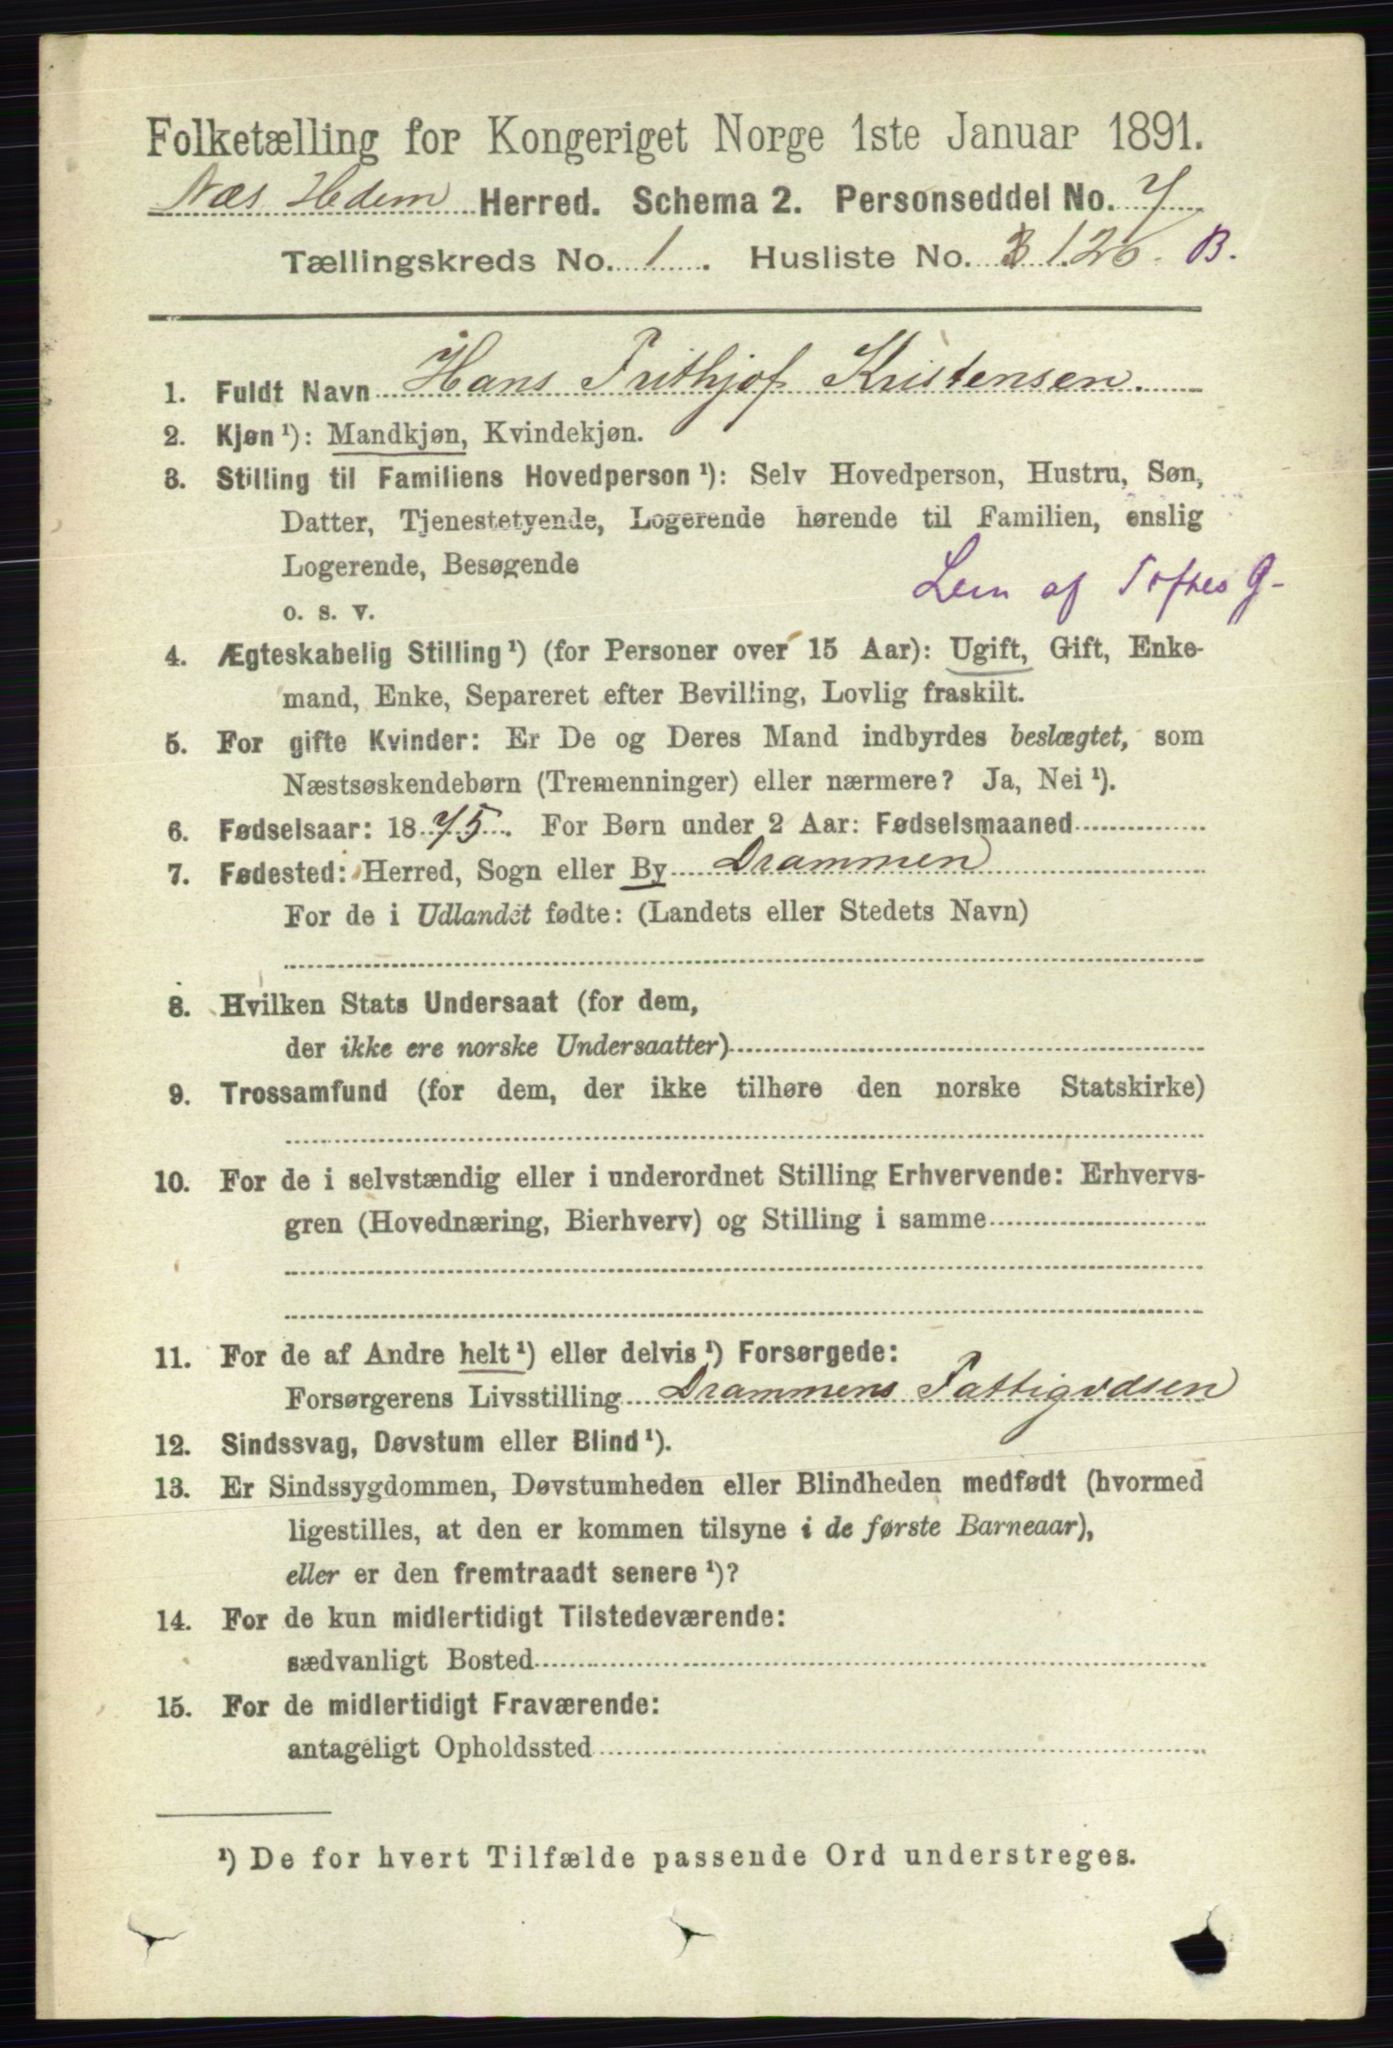 Folketælling for Kongeriget Norge 1ste Januar 1891.
Næs Hedem Herred. Schema 2. Personseddel No. 7
Tællingskreds No. 1. Husliste No. 126. B.
1. Fuldt Navn Hans Frithjof Kristensen.
2. Kjøn ¹): Mandkjøn, Kvindekjøn.
3. Stilling til Familiens Hovedperson ¹): Selv Hovedperson, Hustru, Søn,
Datter, Tjenestetyende, Logerende hørende til Familien, enslig
Logerende, Besøgende
Lem af Toftes G-
o. s. v.
4. Ægteskabelig Stilling ¹) (for Personer over 15 Aar): Ugift, Gift, Enke-
mand, Enke, Separeret efter Bevilling, Lovlig fraskilt.
5. For gifte Kvinder: Er De og Deres Mand indbyrdes beslægtet, som
Næstsøskendebørn (Tremenninger) eller nærmere? Ja, Nei ¹).
6. Fødselsaar: 1875. For Børn under 2 Aar: Fødselsmaaned
7. Fødested: Herred, Sogn eller By Drammen
For de i Udlandet fødte: (Landets eller Stedets Navn)
8. Hvilken Stats Undersaat (for dem,
der ikke ere norske Undersaatter)
9. Trossamfund (for dem, der ikke tilhøre den norske Statskirke)
10. For de i selvstændig eller i underordnet Stilling Erhvervende: Erhvervs-
gren (Hovednæring, Bierhverv) og Stilling i samme
11. For de af Andre helt ¹) eller delvis ¹) Forsørgede:
Forsørgerens Livsstilling Drammens Fattigvdsen
12. Sindssvag, Døvstum eller Blind ¹).
13. Er Sindssygdommen, Døvstumheden eller Blindheden medfødt (hvormed
ligestilles, at den er kommen tilsyne i de første Barneaar),
eller er den fremtraadt senere ¹)?
14. For de kun midlertidigt Tilstedeværende:
sædvanligt Bosted
15. For de midlertidigt Fraværende:
antageligt Opholdssted
¹) De for hvert Tilfælde passende Ord understreges.